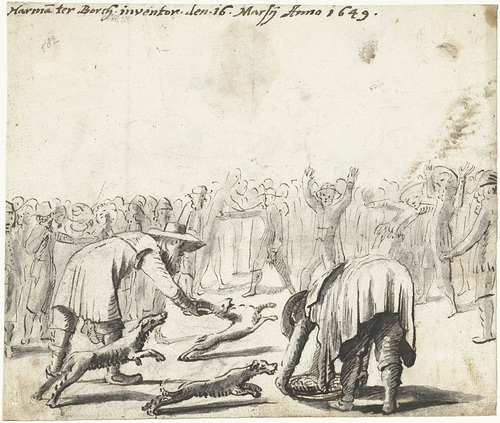 Harmã ter Borch inventor. den. 16. Marsij Anno 1649.